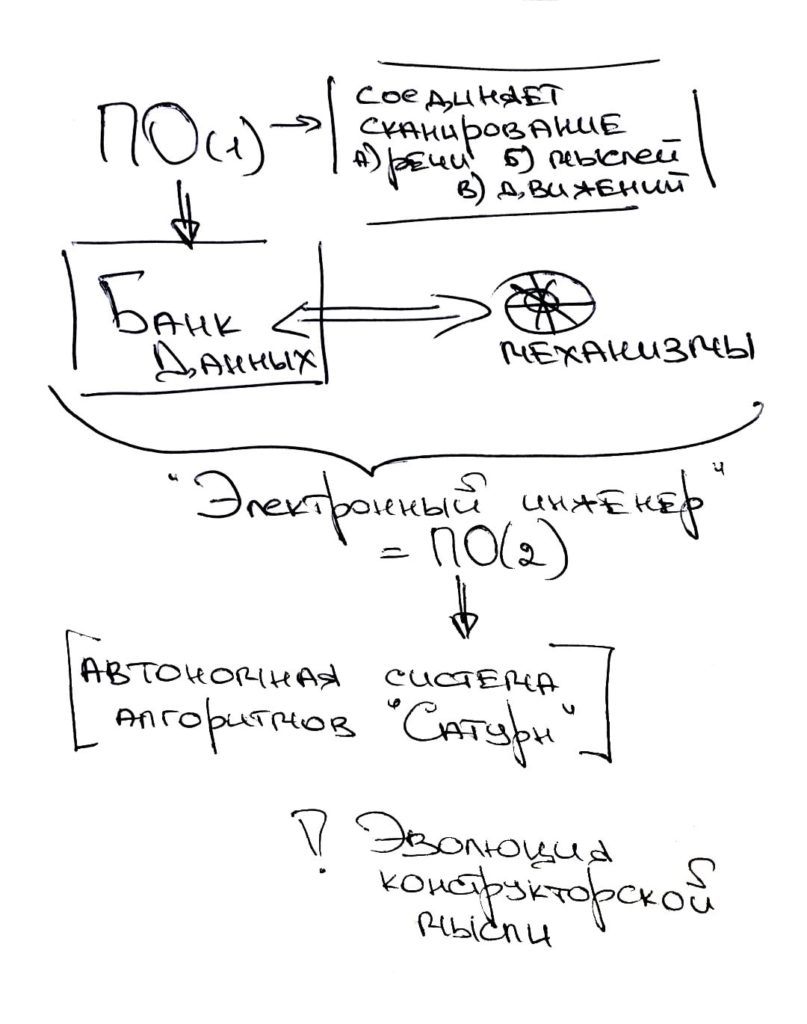 ПО(1)
соединяет
сканирование
а) речи б) мыслей
в) движений
Банк
Данных
механизмы
"Электронный инженер"
= ПО(2)
автономная система
алгоритмов "Сатурн"
! Эволюция
конструкторской
мысли